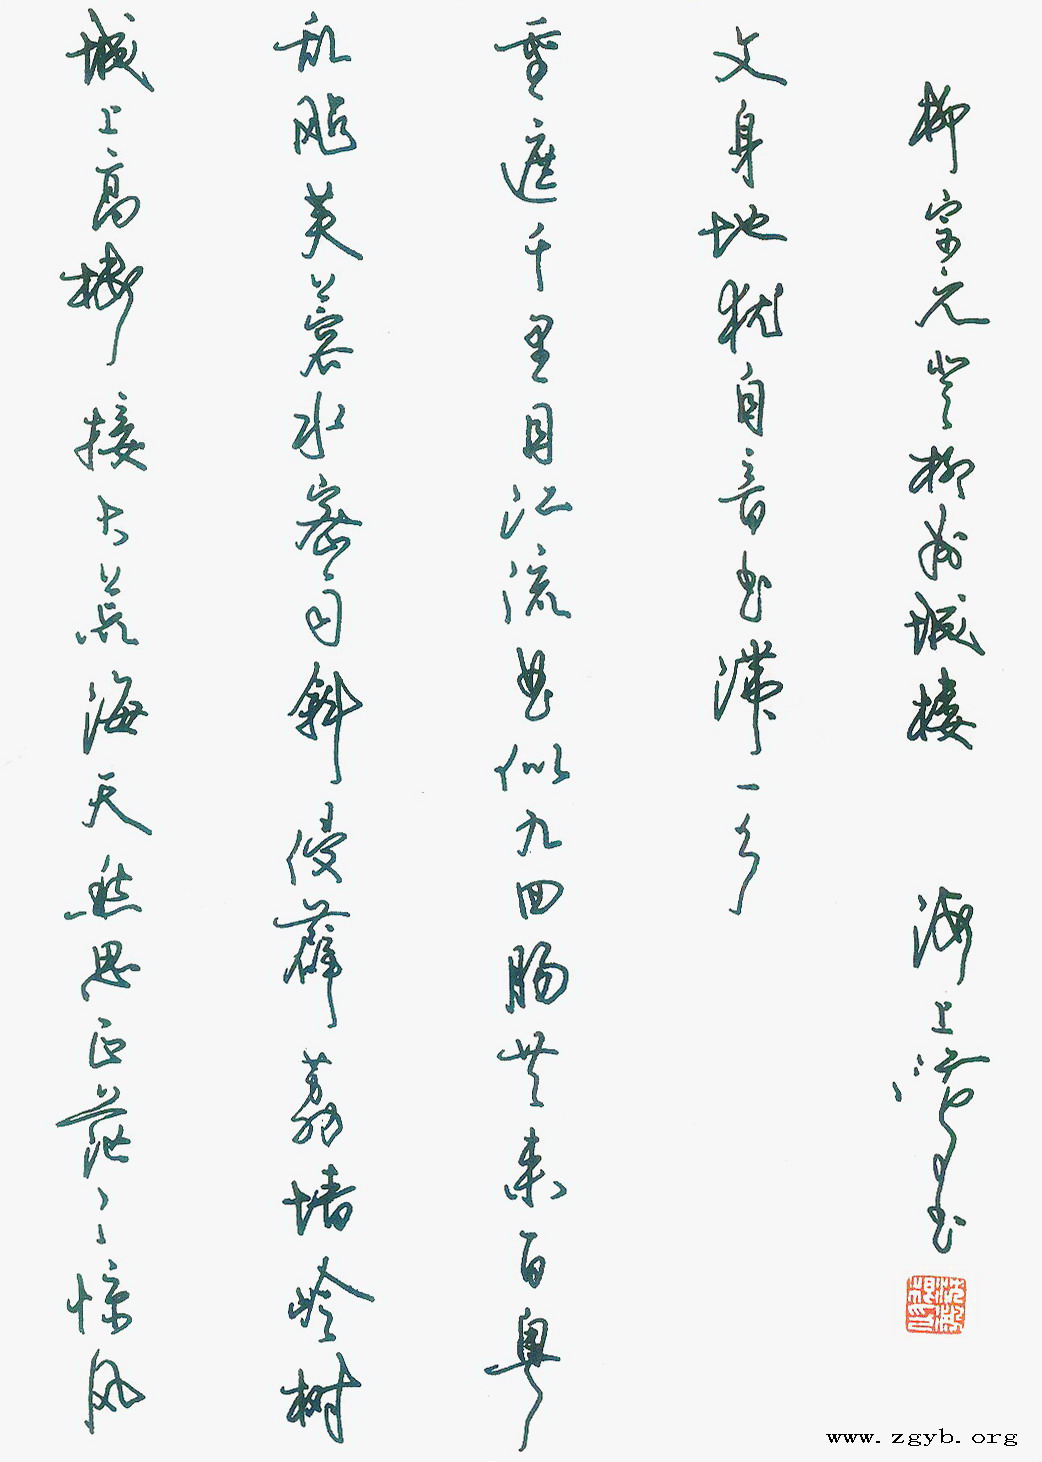 城上高楼接大荒海天愁思正茫々惊风
乱飐芙蓉水密雨斜侵薜荔墙岭树
重遮千里目江流曲似九回肠共来百粤
文身地犹自音书滞一乡
柳宗元登柳州城楼 海上 书
沈鸿根印
www.zgyb.org